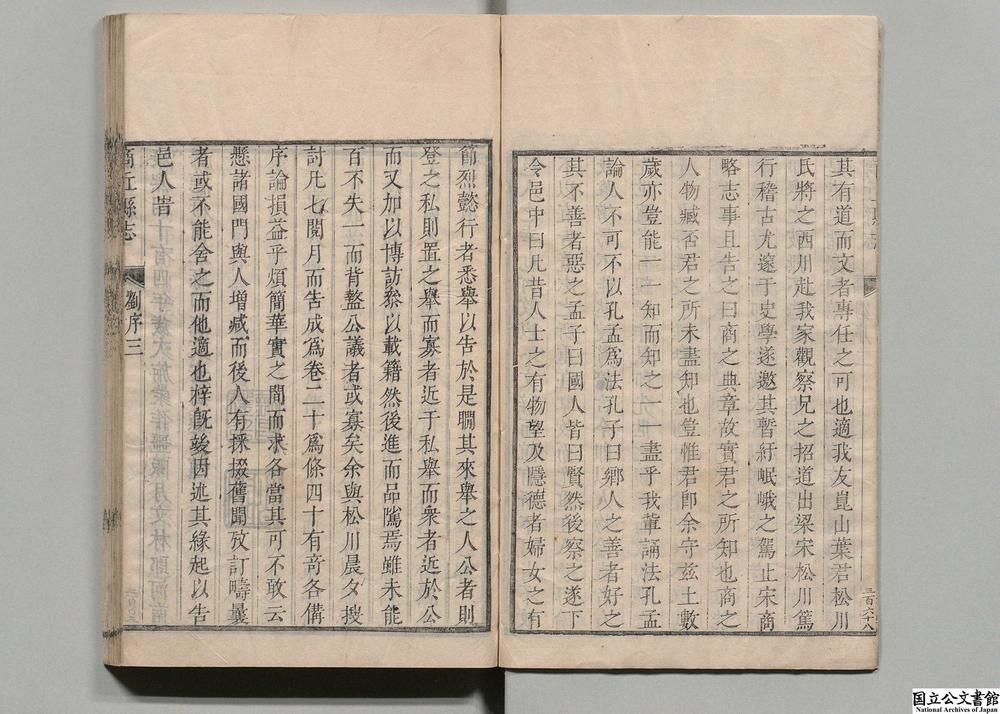 其有道而文者專任之可也適我友崑山葉君松川
氏將之西川赴我家觀察兄之招道出梁宋松川篤
行稽古尤邃于史學遂邀其暫紆岷峨之駕止宋商
略志事且告之曰商之典章故實君之所知也商之
人物臧否君之所未盡知也豈惟君卽余守玆土數
歲亦豈能一一知而知之一一盡乎我輩誦法孔孟
論人不可不以孔孟爲法孔子曰鄉人之善者好之
其不善者惡之孟子曰國人皆曰賢然後察之遂下
令邑中曰凡昔人士之有物望及隱德者婦女之有
節烈懿行者悉舉以告於是瞷其來舉之人公者則
登之私則置之舉而寡者近于私舉而衆者近於公
而又加以博訪叅以載籍然後進而品隲焉雖未能
百不失一而背盭公議者或寡矣余與松川晨夕搜
討凡七閱月而告成爲卷二十爲條四十有奇各備
序論損益乎煩簡華實之間而求各當其可不敢云
懸諸國門與人增減而後人有採掇舊聞攷訂疇曩
者或不能舍之而他適也梓旣竣因述其緣起以告
邑人皆
商丘縣志
劉序三
三百六十八
国立公文書館
National Archives of Japan